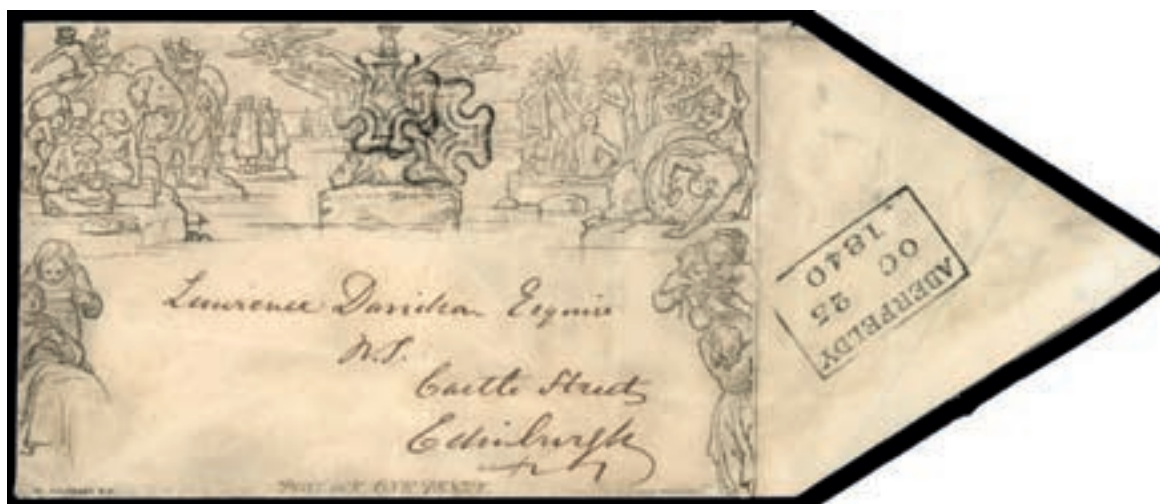 Lawrence Davidson Esquire
W.S.
Castle Street
Edinburgh
POSTAGE ONE PENNY.
ABERFELDY
OC 25
1840